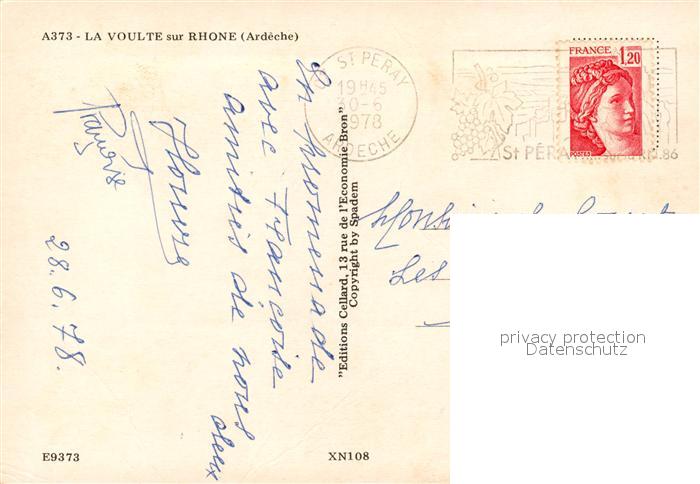 A373 - LA VOULTE sur RHONE (Ardèche)
En promenade
avec Françoise
amitiés de nous
deux
Honoré
Françoise
28.6.78.
"Editions Cellard, 13 rue de l'Economie Bron"
Copyright by Spadem
E9373
XN108
St PÉRAY
19H45
30-6
1978
ARDECHE
FRANCE
1,20
POSTES
St PÉRAY
86
Monsieur
Les
privacy protection
Datenschutz